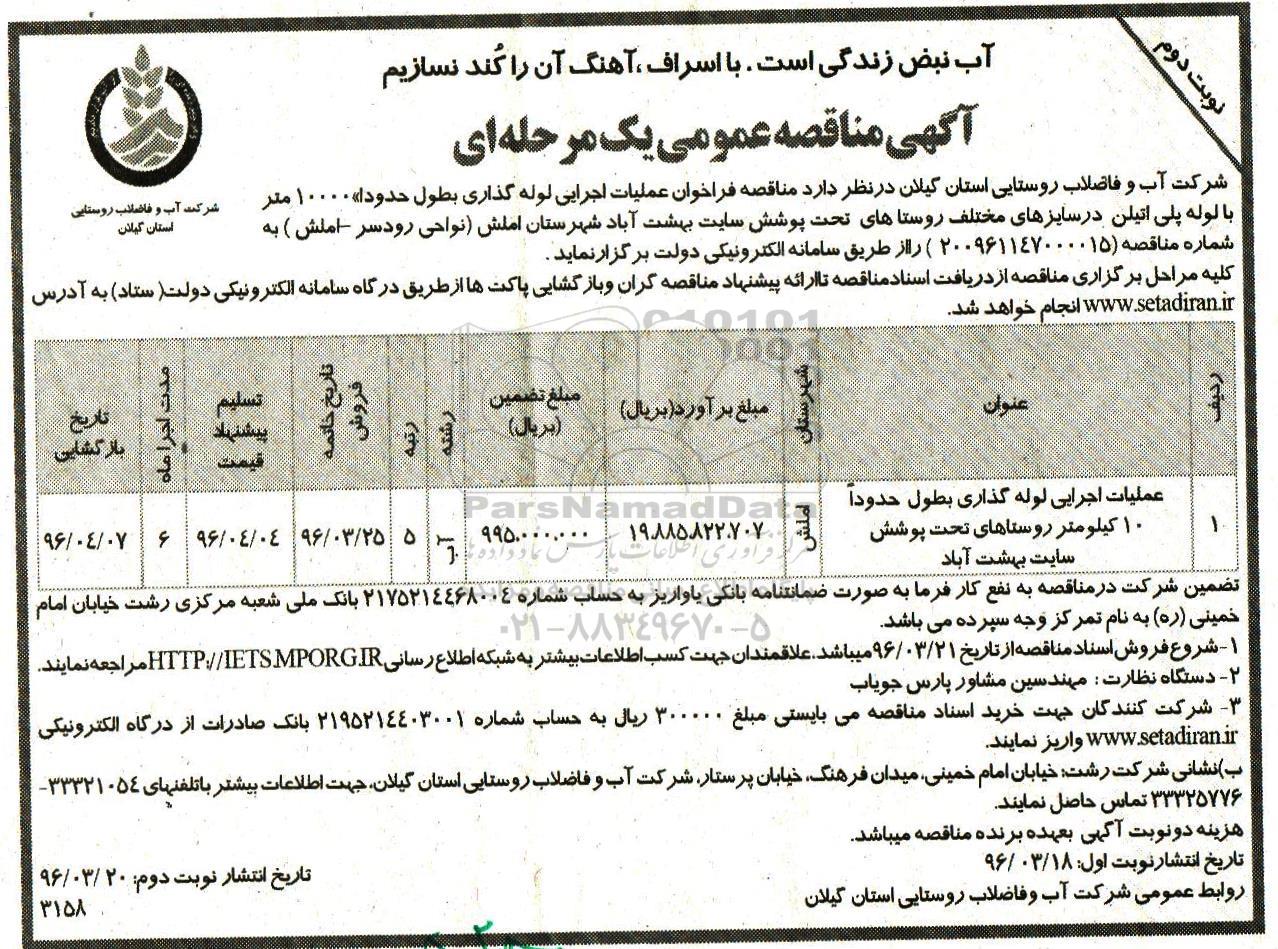 نوبت دوم
آب نبض زندگی است . با اسراف ،آهنگ آن را کُند نسازیم
آگهی مناقصه عمومی یک مرحله ای
شرکت آب و فاضلاب روستایی
استان گیلان
شرکت آب و فاضلاب روستایی استان گیلان درنظر دارد مناقصه فراخوان عملیات اجرایی لوله گذاری بطول حدودا»۱۰۰۰۰ متر
با لوله پلی اتیلن درسایزهای مختلف روستا های تحت پوشش سایت بهشت آباد شهرستان املش (نواحی رودسر –املش ) به
شماره مناقصه (۲۰۰۹۶۱۱۴۷۰۰۰۰۱۵ ) رااز طریق سامانه الکترونیکی دولت برگزارنماید .
کلیه مراحل برگزاری مناقصه ازدریافت اسنادمناقصه تاارائه پیشنهاد مناقصه گران وبازگشایی پاکت ها ازطریق درگاه سامانه الکترونیکی دولت( ستاد) به آدرس
www.setadiran.ir انجام خواهد شد.
ردیف عنوان شهرستان مبلغ برآورد(بریال) مبلغ تضمین (بریال) رشته رتبه تاریخ خاتمه فروش تسلیم پیشنهاد قیمت مدت اجرا ماه تاریخ بازگشایی
۱ عملیات اجرایی لوله گذاری بطول حدوداً ۱۰ کیلومتر روستاهای تحت پوشش سایت بهشت آباد املش ۱۹.۸۸۵.۸۲۲.۷۰۷ ۹۹۵.۰۰۰.۰۰۰ آب ۵ ۹۶/۰۳/۲۵ ۹۶/۰۴/۰۴ ۶ ۹۶/۰۴/۰۷
ParsNamadData
مرکز فرآوری اطلاعات پارس نماد داده ها
۰۲۱-۸۸۳۴۹۶۷۰-۵
تضمین شرکت درمناقصه به نفع کار فرما به صورت ضمانتنامه بانکی یاواریز به حساب شماره ۲۱۷۵۲۱۴۴۶۸۰۰۴ بانک ملی شعبه مرکزی رشت خیابان امام
خمینی (ره) به نام تمرکز وجه سپرده می باشد.
۱-شروع فروش اسناد مناقصه از تاریخ ۹۶/۰۳/۲۱ میباشد.علاقمندان جهت کسب اطلاعات بیشتر به شبکه اطلاع رسانی HTTP://IETS.MPORG.IR مراجعه نمایند.
۲- دستگاه نظارت : مهندسین مشاور پارس جویاب
۳- شرکت کنندگان جهت خرید اسناد مناقصه می بایستی مبلغ ۳۰۰۰۰۰ ریال به حساب شماره ۲۱۹۵۲۱۴۴۰۳۰۰۱ بانک صادرات از درگاه الکترونیکی
www.setadiran.ir واریز نمایند.
ب)نشانی شرکت رشت: خیابان امام خمینی، میدان فرهنگ، خیابان پرستار، شرکت آب و فاضلاب روستایی استان گیلان، جهت اطلاعات بیشتر باتلفنهای ۳۳۳۲۱۰۵۴-
۳۳۳۲۵۷۷۶ تماس حاصل نمایند.
هزینه دونوبت آگهی بعهده برنده مناقصه میباشد.
تاریخ انتشارنوبت اول: ۹۶/ ۰۳/۱۸
تاریخ انتشار نوبت دوم: ۲۰ /۹۶/۰۳
روابط عمومی شرکت آب وفاضلاب روستایی استان گیلان
۳۱۵۸